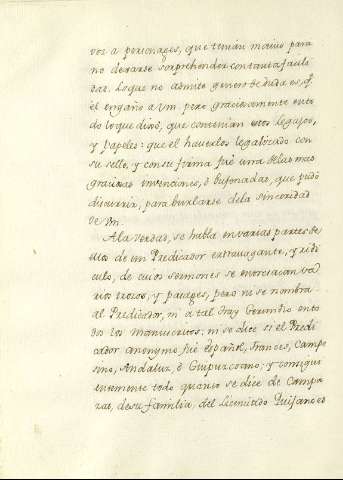 vos a personages, que tenian motivo para
no dexarse sorprehender con tanta facili
dad. Lo que no admite genero de duda es, q.
el engaño a Vm. pero graciosamente en to
do lo que dixo, que contenian estos legajos,
y papeles: que el haverlos legalizado con
su sello, y con su firma fue una de las mas
graciosas invenciones, ò bufonadas, que pudo
discurrir, para burlarse de la sinceridad
de Vm.
A la verdad, se habla en varias partes de
ellos de un Predicador extravagante, y ridi
culo, de cuios sermones se entresacan va
rios trozos, y pasages, pero ni se nombra
al Predicador, ni a tal Fray Gerundio en to
dos los manuscritos: ni se dice si el Predi
cador anonymo fuè Español, Frances, Campe
sino, Andaluz, ò Guipuzcoano; y consigui
entemente todo quanto se dice de Campa
zas, de su familia, del Licenciado Quijano es